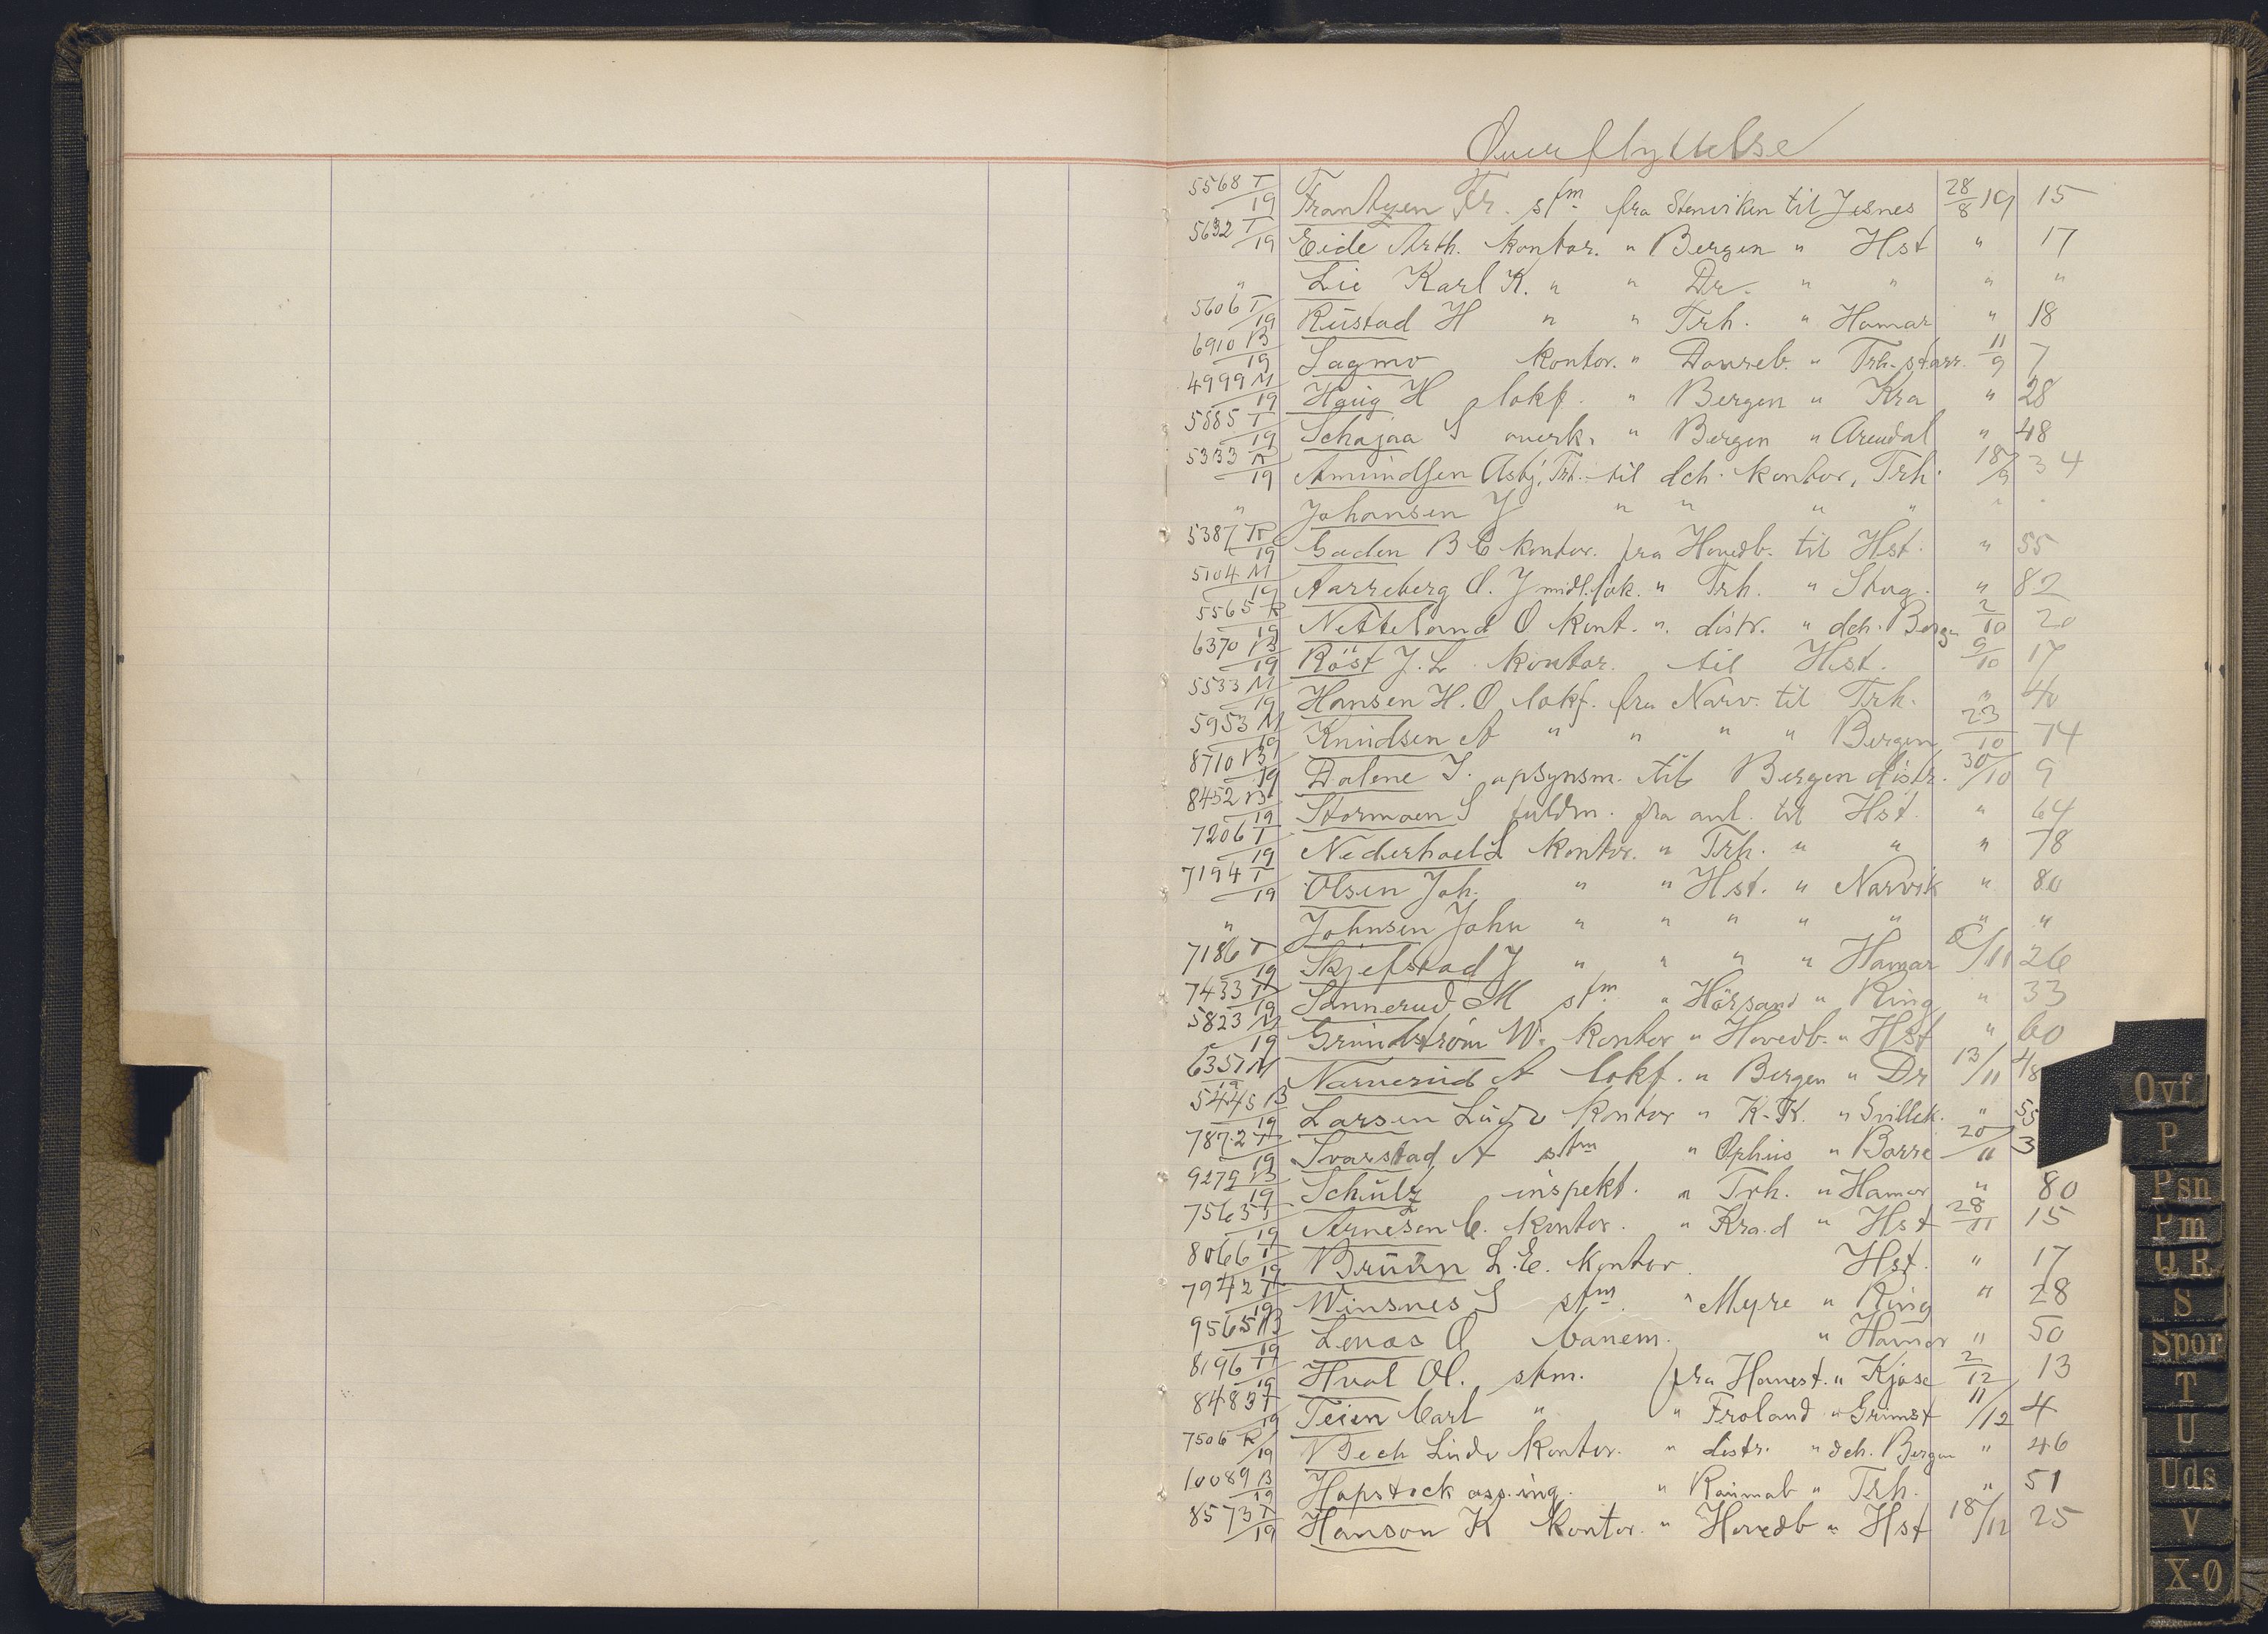 Overflyttelse
5568 T/19 Frantzen Fr. stm fra Stenviken til Jesnes 28/8 19 15
5632 T/19 Eide Arth. kontor. " Bergen " Hst " 17
" Lie Karl K. " " Dr. " " " "
5606 T/19 Rustad H " " Trh. " Hamar " 18
6910 B/19 Lagmo kontor. " Dovreb. " Trh. 11/9 7
4999 M/19 Haug H lokf. " Bergen " Kra " 28
5885 T/19 Schajaa S overk. " Bergen " Arendal " 48
5333 R/19 Amundsen Asbj. Trh. til dch. kontor, Trh. 18/9 34
" Johansen J " " " " " "
5387 R/19 Gaden B C kontor. fra Hovedb. til Hst. " 55
5104 M/19 Aarreberg O. J midl. lok. " Trh. " Stug. " 82
5565 R/19 Netteland O kont. " distr. " dch. Bergen 2/10 20
6370 B/19 Röst J. L. kontor. til Hst. 9/10 17
5533 M/19 Hansen H. O lokf. fra Narv. til Trh. " 40
5953 M/19 Knudsen A " " " " Bergen 23/10 74
8710 B/19 Dalene S. opsynsm. til Bergen distr. 30/10 9
8452 B/19 Stormoen S fuldm. fra anl. til Hst. " 64
7206 T/19 Nederhoel L kontor. " Trh. " " " 78
7194 T/19 Olsen Joh. " " Hst. " Narvik " 80
" Johnsen John " " " " " " "
7186 T/19 Skjefstad J " " " " Hamar /11 26
7433 T/19 Sannerud M stm " Hörsand " Ring " 33
5823 M/19 Grundström W. kontor " Hovedb. " Hst " 60
6351 M/19 Narverud A lokf. " Bergen " Dr 13/11 48
5445 B/19 Larsen Ludv kontor " K-K. " Gvillek. " 55
7872 T/19 Svarstad A stm " Ophus " Borre 20/11 3
9279 B/19 Schulz inspekt. " Trh. " Hamar " 80
7563 T/19 Arnesen C. kontor. " Kra. d " Hst 28/11 15
8066 T/19 Bruun L. E. kontor. Hst. " 17
7942 T/19 Winsnes S stm. " Myre " Ring " 28
9565 B/19 Lenæs O banem. " Hamar " 50
8196 T/19 Hval Ol. stm. fra Hanest. " Kjose 2/12 13
8483 T/19 Teien Carl " " Froland " Grimst 11/12 4
7506 R/19 Bech Ludv kontor. " distr. " dch. Bergen " 46
10089 B/19 Hapstock ass. ing. " Raumab " Trh. " 51
8573 T/19 Hanson K kontor. " Hovedb " Hst 18/12 25
Ovf
P
Psn
Pm
Q R
S
Spor
T
U
Uds
V
X-Ø